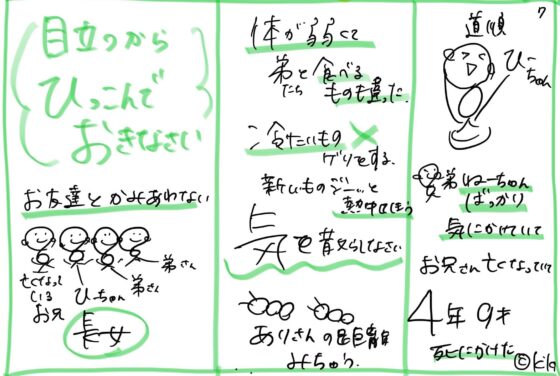 目立つから
ひっこんで
おきなさい
お友達とかみあわない
亡くなって
いる
お兄
ひーちゃん
弟さん
弟さん
長女
体が弱くて
弟と食べる
たち
ものも違った.
冷たいもの ×
ゲリをする.
新しいもの ジーッと
熱中しちゃう
気を散らしてなさい
ありさんの
みちゅう.
7
道順
ひーちゃん
弟 ねーちゃん
ばっかり
気にかけていて
お兄さん亡くなっていて
4年 9才
死にかけた
©kiko